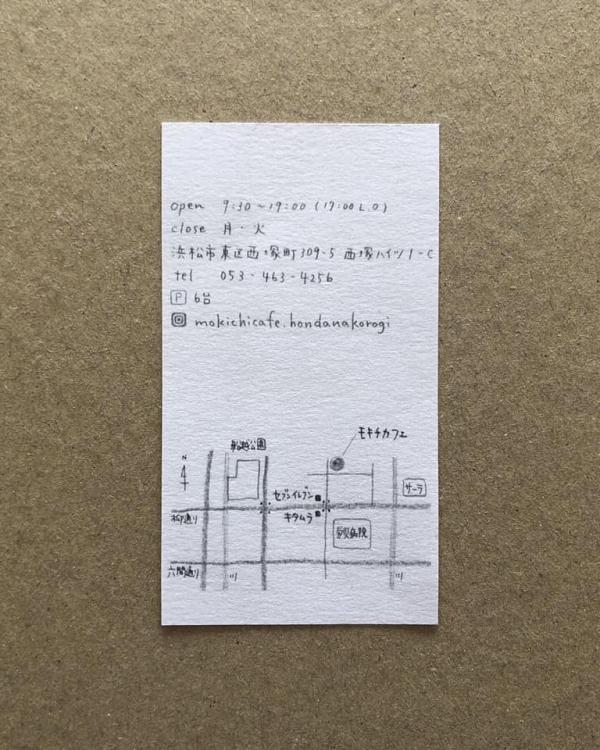 open 9:30～19:00 (17:00 L.O)
close 月・火
浜松市東区西塚町309-5 西塚ハイツ1-C
tel 053-463-4256
P 6台
mokichicafe.hondanakorogi
モキチカフェ
船越公園
N
サーラ
セブンイレブン
柳通り
キタムラ
六間通り
川
川